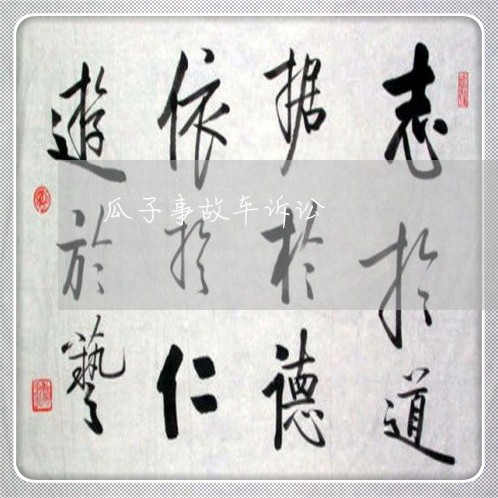 志於道
据於德
依於仁
遊於藝
瓜子事故车诉讼